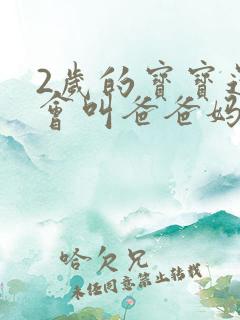 2歲的寶寶
會叫爸爸媽
哈欠兄
未經同意禁止轉載